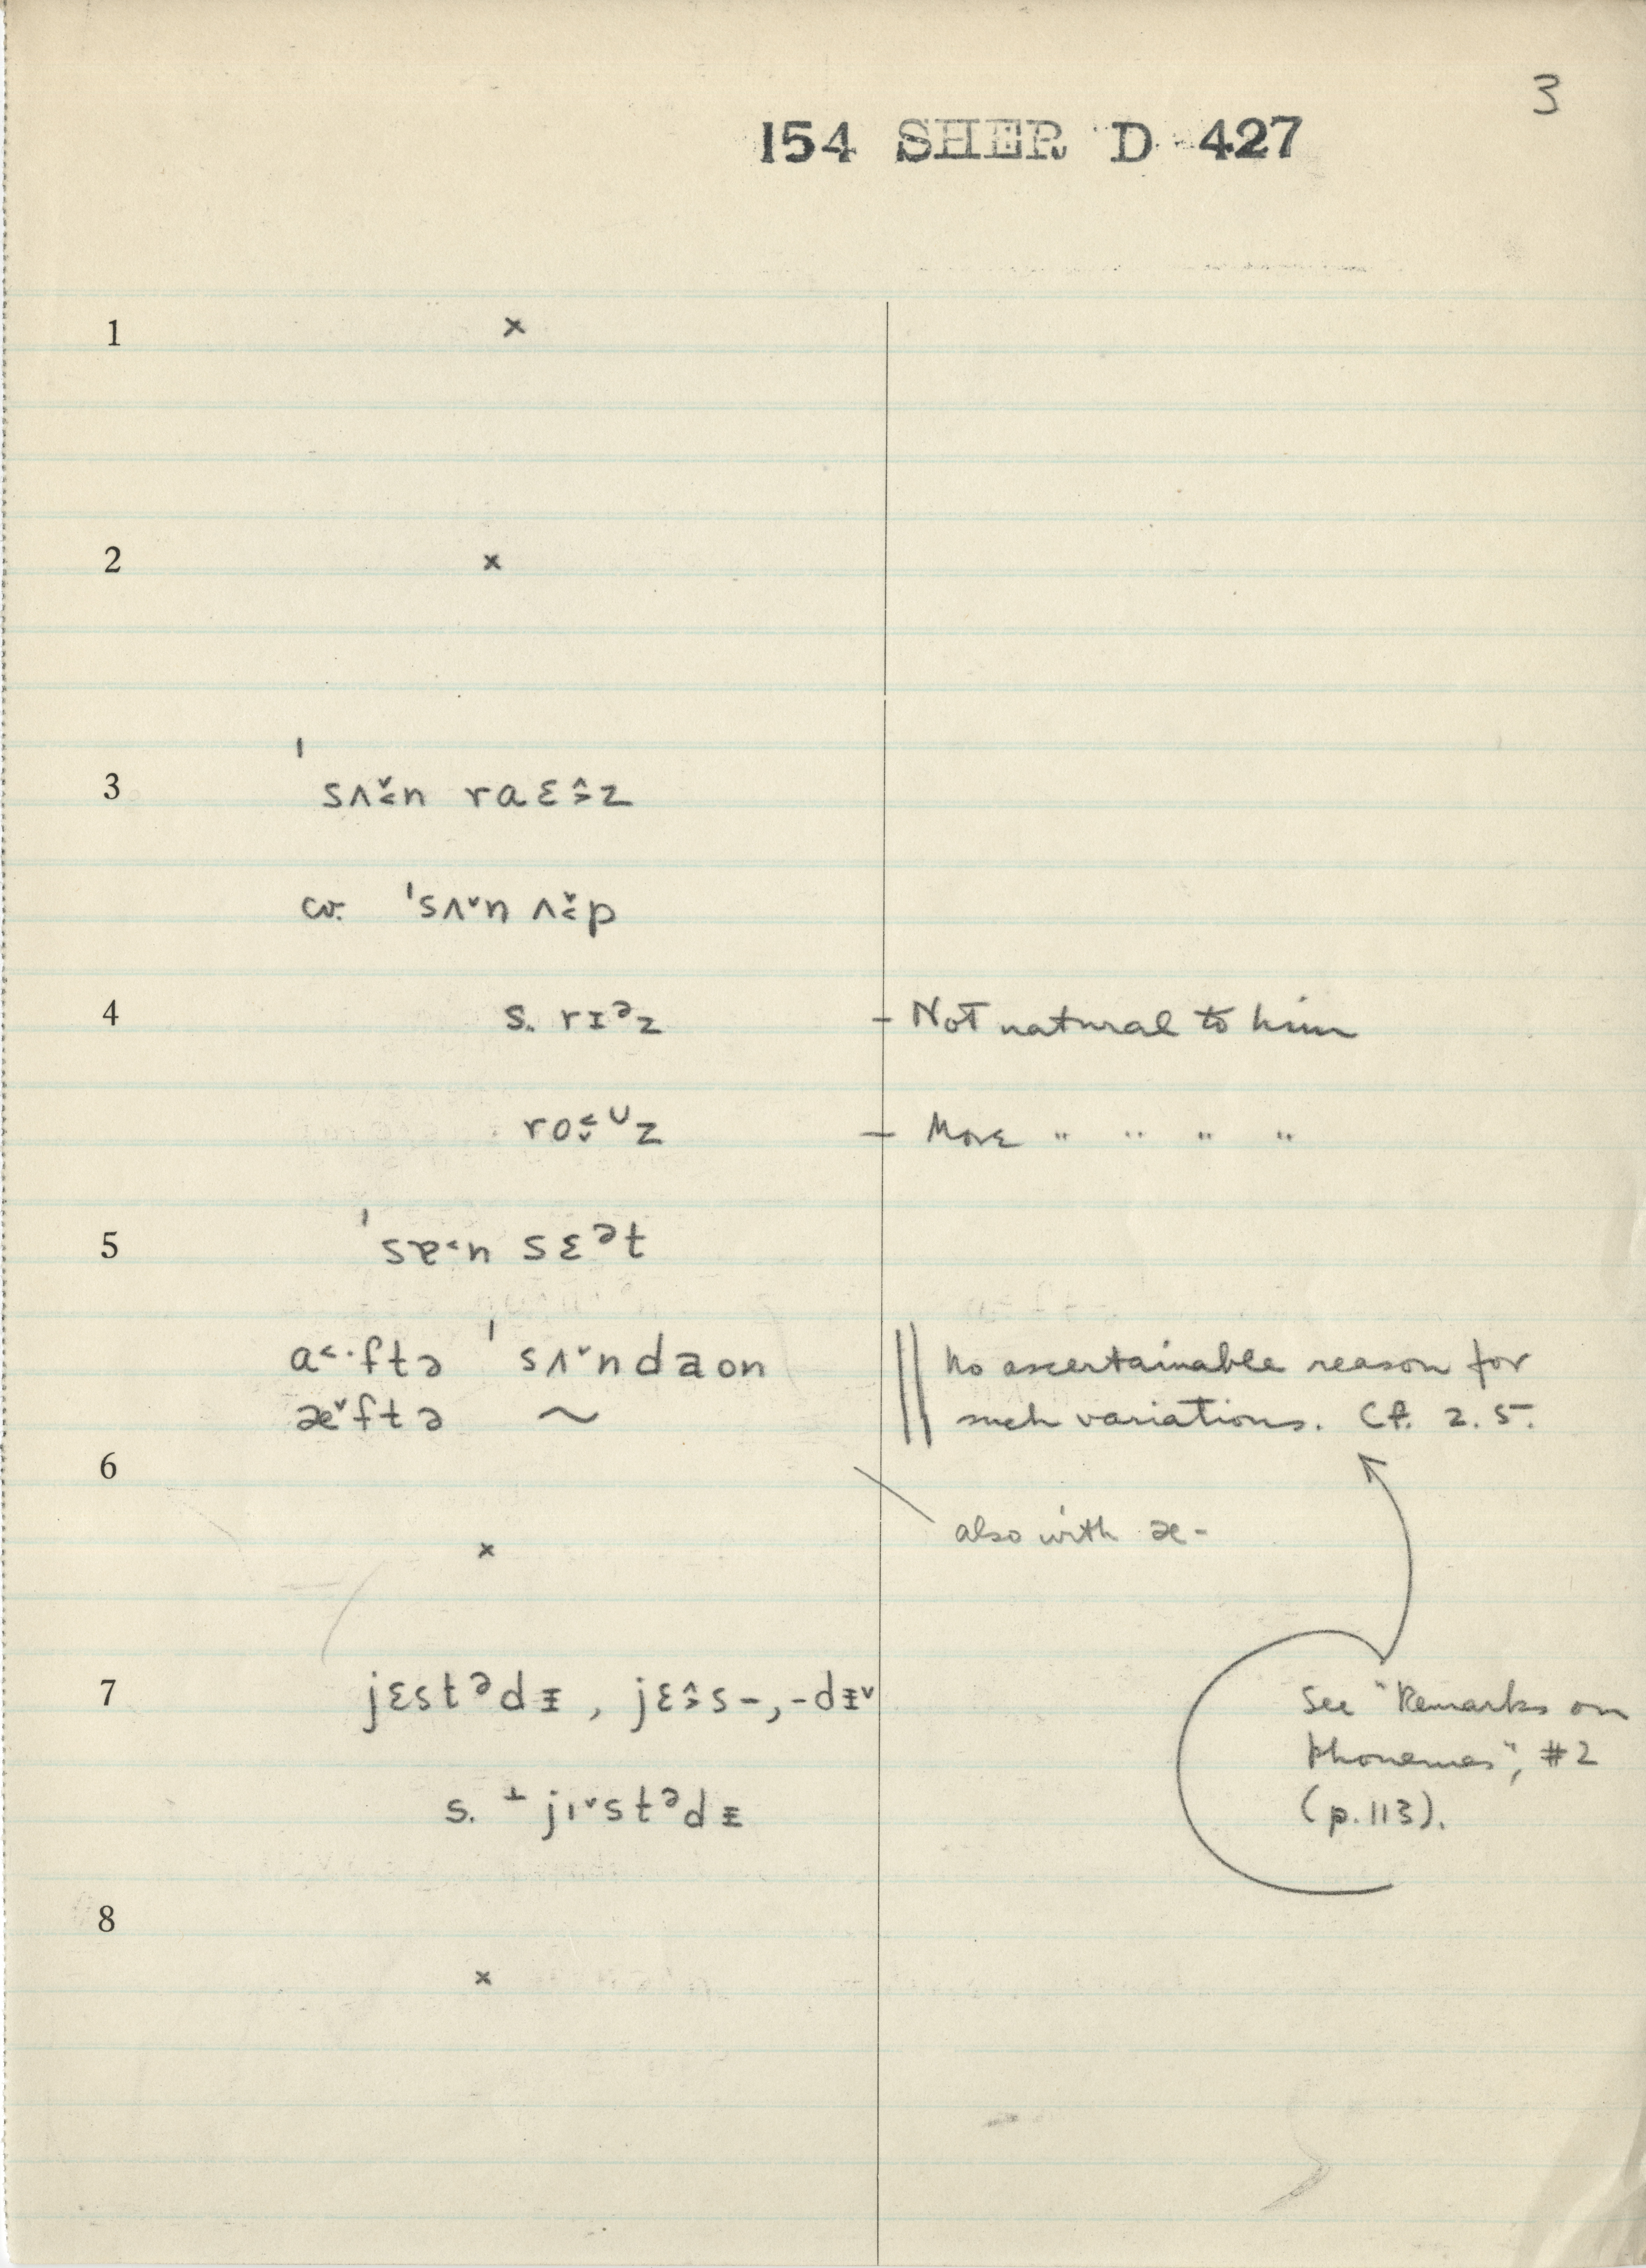 3
154 SHER D 427
1 ×
2 ×
3 ˈsʌ̬˂n raɛ˄˃z
cv. ˈsʌˇn ʌ̬˂p
4 s. rɪᵊz – Not natural to him
ro˂ˬᶷz – More " " " "
5 ˈsɐ˂n sɛᵊt
a˂·ftə ˈsʌˇndaon || No ascertainable reason for
æˇftə ~ such variations. Cf. 2.5.
6 ×
also with æ-
7 jɛstᵊdᵻ, jɛ˄˃s-, -dᵻˇ
See "Remarks on
Phonemes", #2
(p. 113).
s. ⊥jɪˇstᵊdᵻ
8 ×